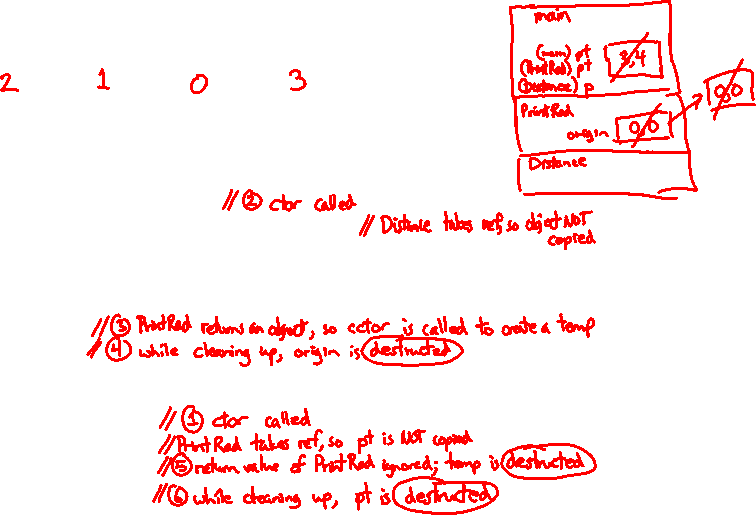 main
(main) pt
(PrintRad) pt
(Distance) p
3,4
2 1 0 3
PrintRad
origin 0,0
0,0
Distance
// ② ctor called
// Distance takes ref, so object NOT
copied
// ③ PrintRad returns an object, so cctor is called to create a temp
// ④ while cleaning up, origin is destructed
// ① ctor called
// PrintRad takes ref, so pt is NOT copied
// ⑤ return value of PrintRad ignored; temp is destructed
// ⑥ while cleaning up, pt is destructed